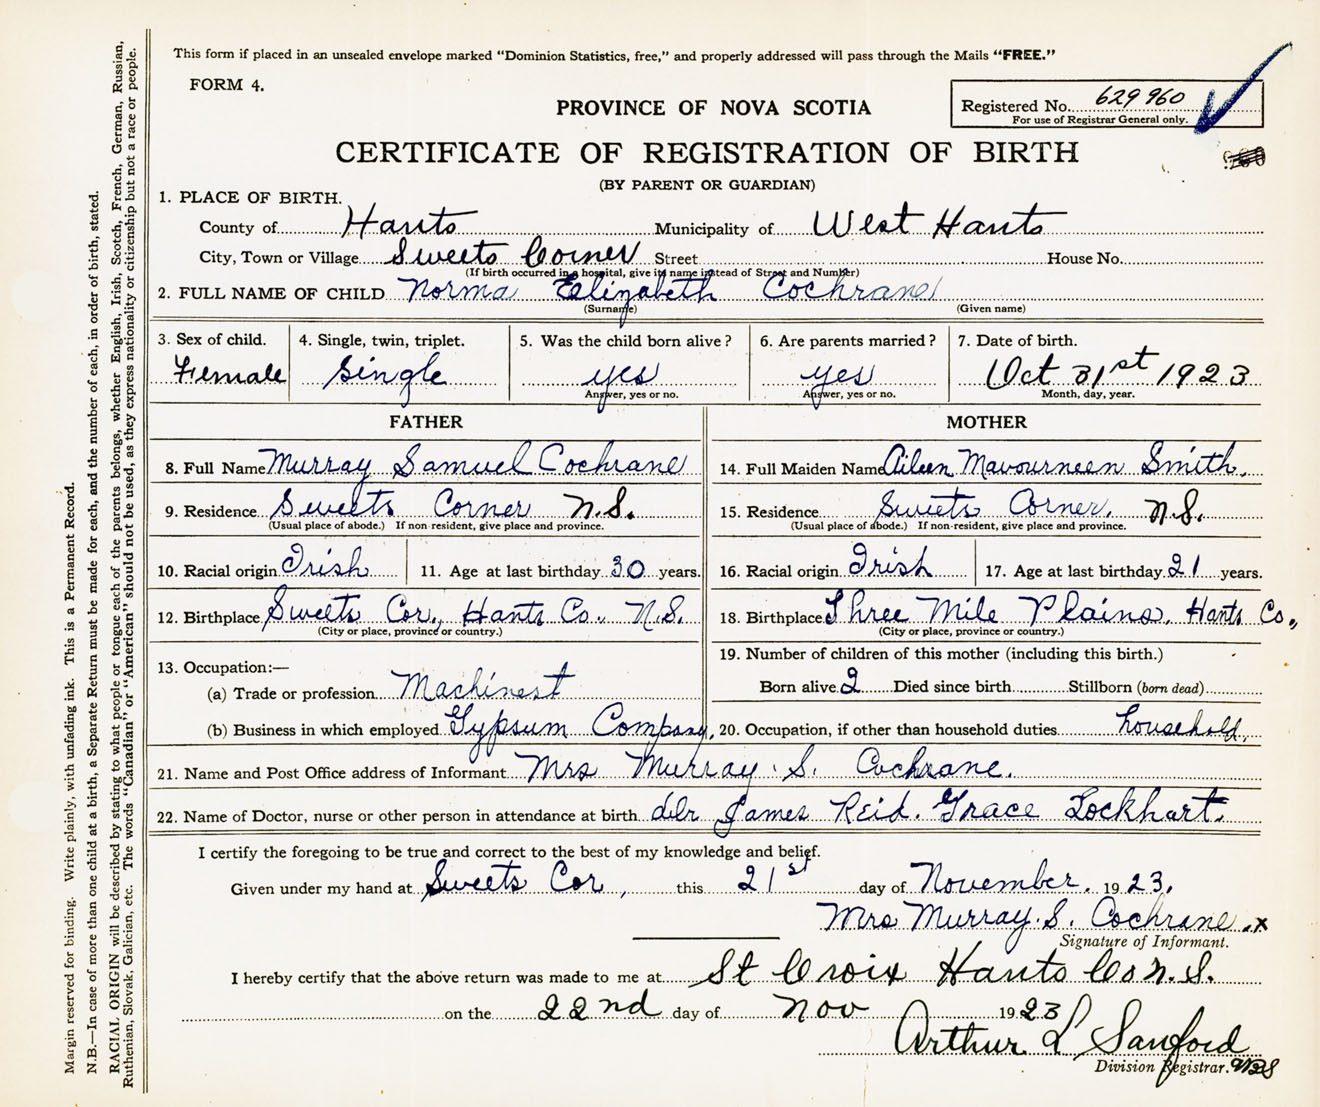 This form if placed in an unsealed envelope marked "Dominion Statistics, free," and properly addressed will pass through the Mails "FREE."
FORM 4.
Registered No. 629960
For use of Registrar General only.
PROVINCE OF NOVA SCOTIA
CERTIFICATE OF REGISTRATION OF BIRTH
(BY PARENT OR GUARDIAN)
1. PLACE OF BIRTH.
County of Hants Municipality of West Hants
City, Town or Village Sweets Corner Street House No.
(If birth occurred in a hospital, give its name instead of Street and Number)
2. FULL NAME OF CHILD Norma Elizabeth Cochrane
(Surname) (Given name)
3. Sex of child. 4. Single, twin, triplet. 5. Was the child born alive? 6. Are parents married? 7. Date of birth.
Female Single yes yes Oct 31st 1923
Answer, yes or no. Answer, yes or no. Month, day, year.
FATHER MOTHER
8. Full Name Murray Samuel Cochrane 14. Full Maiden Name Aileen Mavourneen Smith.
9. Residence Sweets Corner N.S. 15. Residence Sweets Corner. N.S.
(Usual place of abode.) If non-resident, give place and province. (Usual place of abode.) If non-resident, give place and province.
10. Racial origin Irish 11. Age at last birthday 30 years. 16. Racial origin Irish 17. Age at last birthday 21 years.
12. Birthplace Sweets Cor., Hants Co., N.S. 18. Birthplace Three Mile Plains, Hants Co.,
(City or place, province or country.) (City or place, province or country.)
13. Occupation:— 19. Number of children of this mother (including this birth.)
(a) Trade or profession Machinest Born alive 2 Died since birth Stillborn (born dead)
(b) Business in which employed Gypsum Company. 20. Occupation, if other than household duties household.
21. Name and Post Office address of Informant Mrs Murray S. Cochrane.
22. Name of Doctor, nurse or other person in attendance at birth James Reid. Grace Lockhart.
I certify the foregoing to be true and correct to the best of my knowledge and belief.
Given under my hand at Sweets Cor, this 21st day of November. 1923.
Mrs Murray. S. Cochrane. x
Signature of Informant.
I hereby certify that the above return was made to me at St Croix Hants Co N.S.
on the 22nd day of Nov 1923
Arthur L Sanford
Division Registrar.
Margin reserved for binding. Write plainly, with unfading ink. This is a Permanent Record.
N.B.—In case of more than one child at a birth, a Separate Return must be made for each, and the number of each, in order of birth, stated.
RACIAL ORIGIN will be described by stating to what people or tongue each of the parents belongs, whether English, Irish, Scotch, French, German, Russian,
Ruthenian, Slovak, Galician, etc. The words "Canadian" or "American" should not be used, as they express nationality or citizenship but not a race or people.